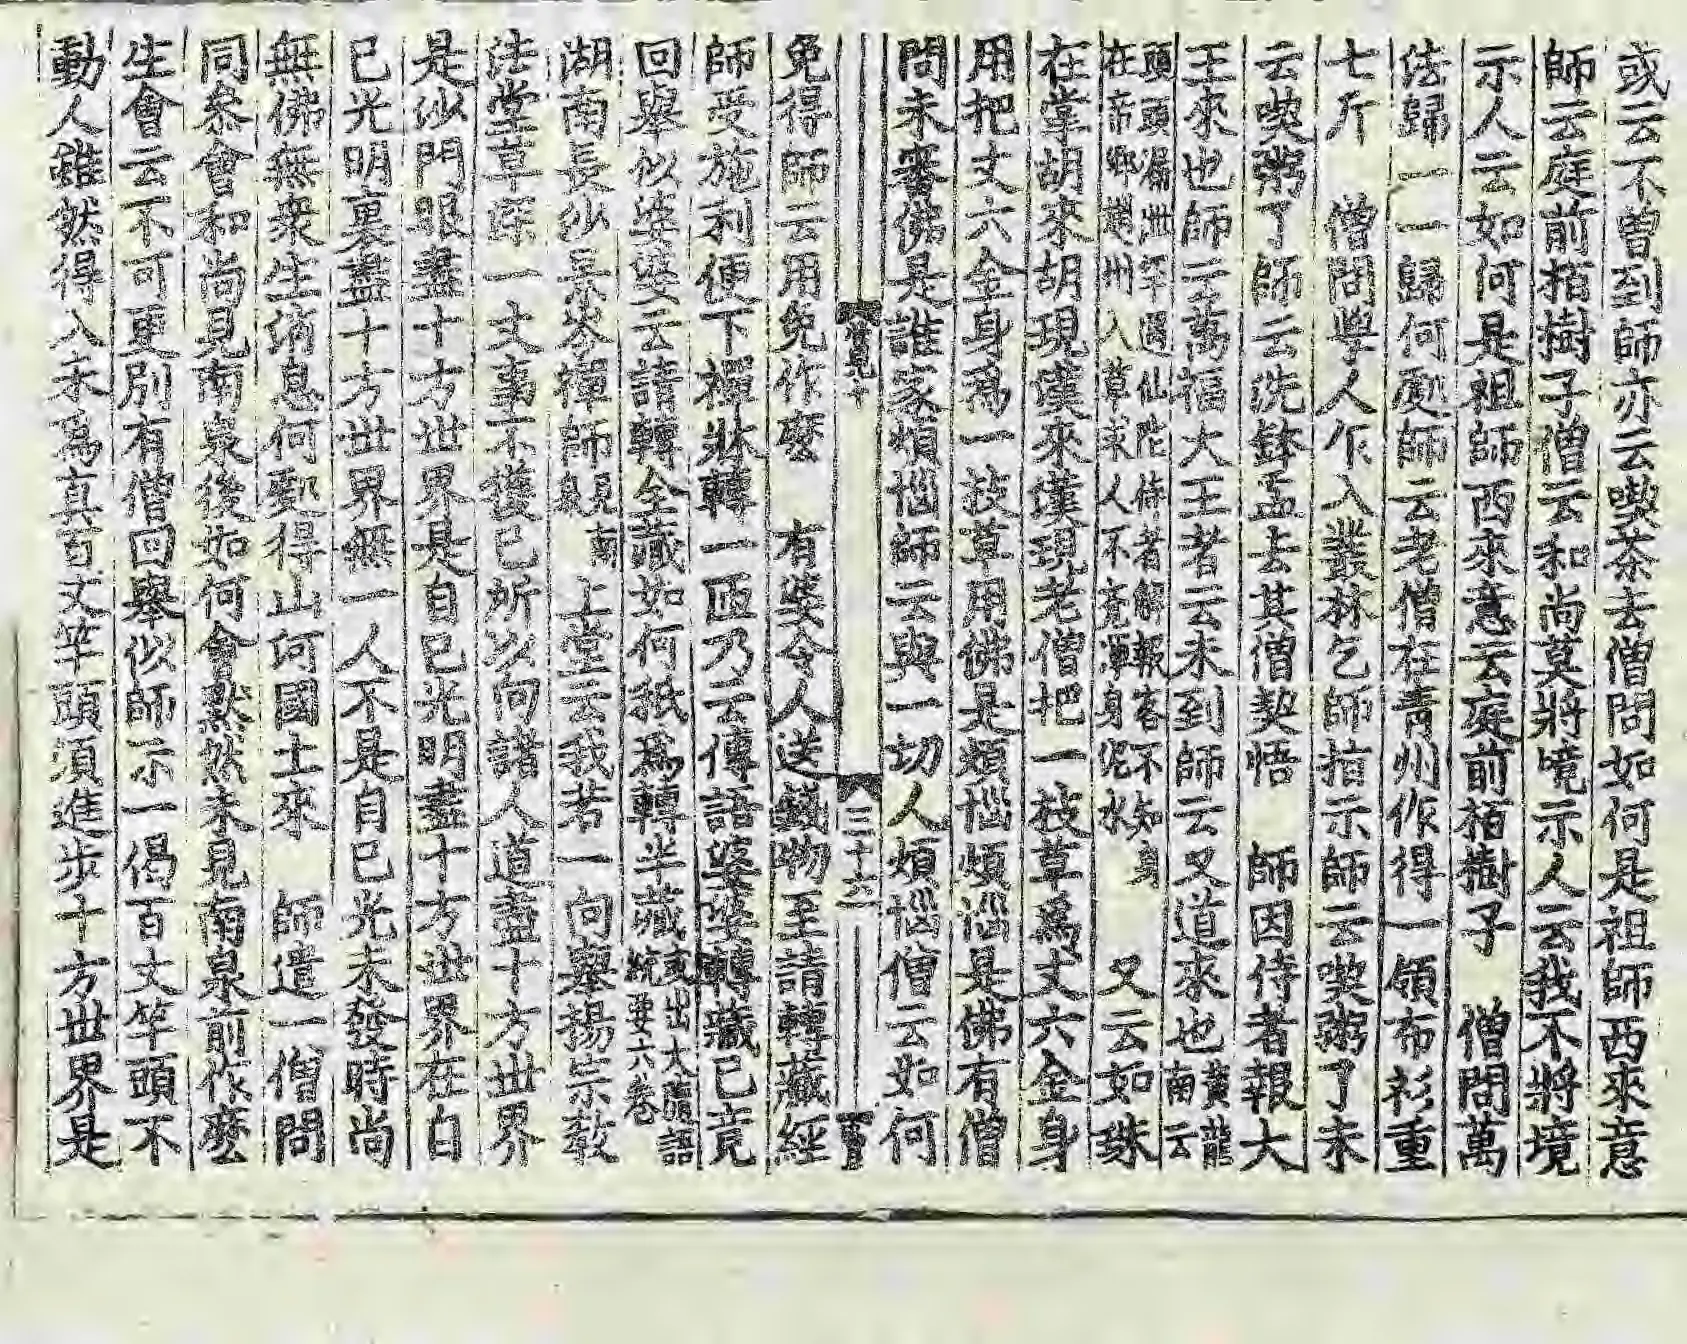 或云不曾到師亦云喫茶去僧問如何是祖師西來意
師云庭前栢樹子僧云和尚莫將境示人云我不將境
示人云如何是祖師西來意云庭前栢樹子 僧問萬
法歸一一歸何處師云老僧在青州作得一領布衫重
七斤 僧問學人乍入叢林乞師指示師云喫粥了未
云喫粥了師云洗鉢盂去其僧契悟 師因侍者報大
王來也師云萬福大王者云未到師云又道來也黃龍南云
頭頭漏泄罕遇仙陁侍者解報客不知身在帝鄉趙州入草求人不覺渾身泥水 又云如珠
在掌胡來胡現漢來漢現老僧把一枝草爲丈六金身
用把丈六金身爲一枝草用佛是煩惱煩惱是佛有僧
問未審佛是誰家煩惱師云與一切人煩惱僧云如何
三十六
免得師云用免作麽 有婆令人送錢物至請轉藏經
師受施利便下禪牀轉一匝乃云傳語婆婆轉藏已竟
回舉似婆婆云請轉全藏如何秖爲轉半藏
湖南長沙景岑禪師嗣南 上堂云我若一向舉揚宗教
法堂草深一丈事不獲已所以向諸人道盡十方世界
是沙門眼盡十方世界是自己光明盡十方世界在自
己光明裏盡十方世界無一人不是自己光未發時尚
無佛無衆生消息何處得山河國土來 師遣一僧問
同叅會和尚見南泉後如何會默然未見南泉前作麽
生會云不可更別有僧回舉似師示一偈百丈竿頭不
動人雖然得入未爲真百丈竿頭須進步十方世界是